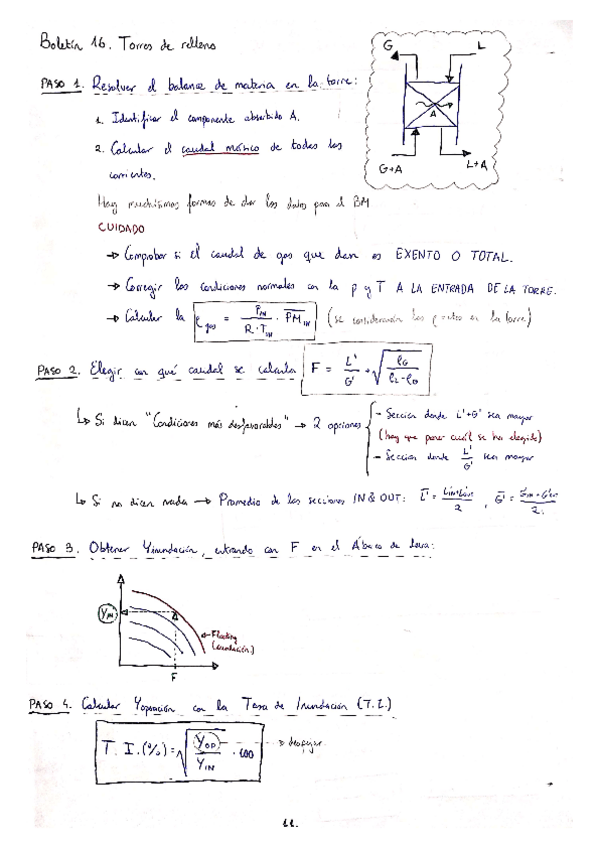 Boletín 16. Torres de relleno
G
L
A
G+A
L+A
PASO 1. Resolver el balance de materia en la torre:
1. Identificar el componente absorbido A.
2. Calcular el caudal másico de todas las
corrientes.
Hay muchísimas formas de dar los datos para el BM
CUIDADO
→ Comprobar si el caudal de gas que dan es EXENTO O TOTAL.
→ Corregir las condiciones normales con la p y T A LA ENTRADA DE LA TORRE.
→ Calcular la ρgas = PIN / R · TIN · PMIN (se consideran las ρ ctes en la torre)
PASO 2. Elegir con qué caudal se calcula F = L' / G' · √ ρG / ρL-ρG
↳ Si dicen "Condiciones más desfavorables" → 2 opciones
- Sección donde L'+G' sea mayor
(hay que poner cuál se ha elegido)
- Sección donde L' / G' sea mayor
↳ Si no dicen nada → Promedio de las secciones IN & OUT: L' = / 2 , G' = / 2
PASO 3. Obtener Yinundación, entrando con F en el Ábaco de :
YIN
← Flooding
(inundación)
F
PASO 4. Calcular Yoperación con la Tasa de Inundación (T.I.)
T. I.(%) = √ YOP / YIN · 100
→ despejar
11.